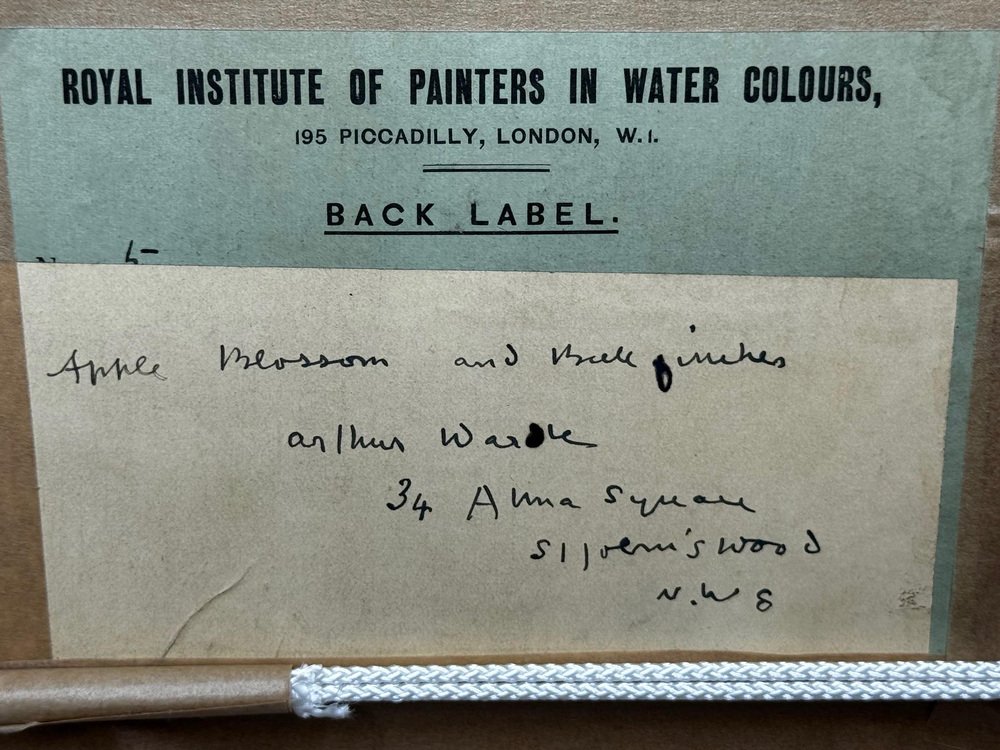 ROYAL INSTITUTE OF PAINTERS IN WATER COLOURS,
195 PICCADILLY, LONDON, W.1.
BACK LABEL.
5
Apple Blossom and Bullfinches
Arthur Wardle
34 Alma Square
St John's Wood
N.W 8